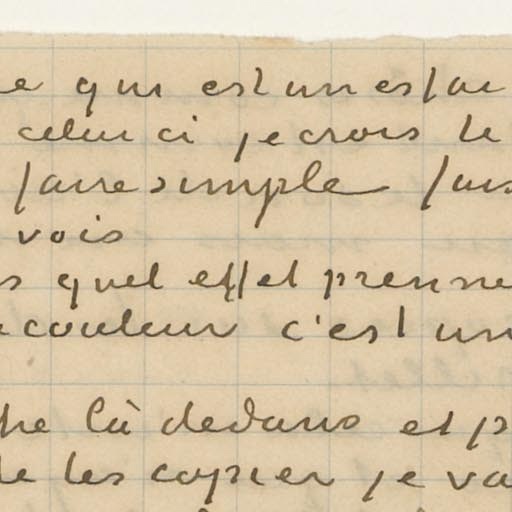 e qui est un es
celui ci je crois le
faire simple fais
vois
s quel effet prenne
couleur c'est un
he là dedans et p
de les copier je va